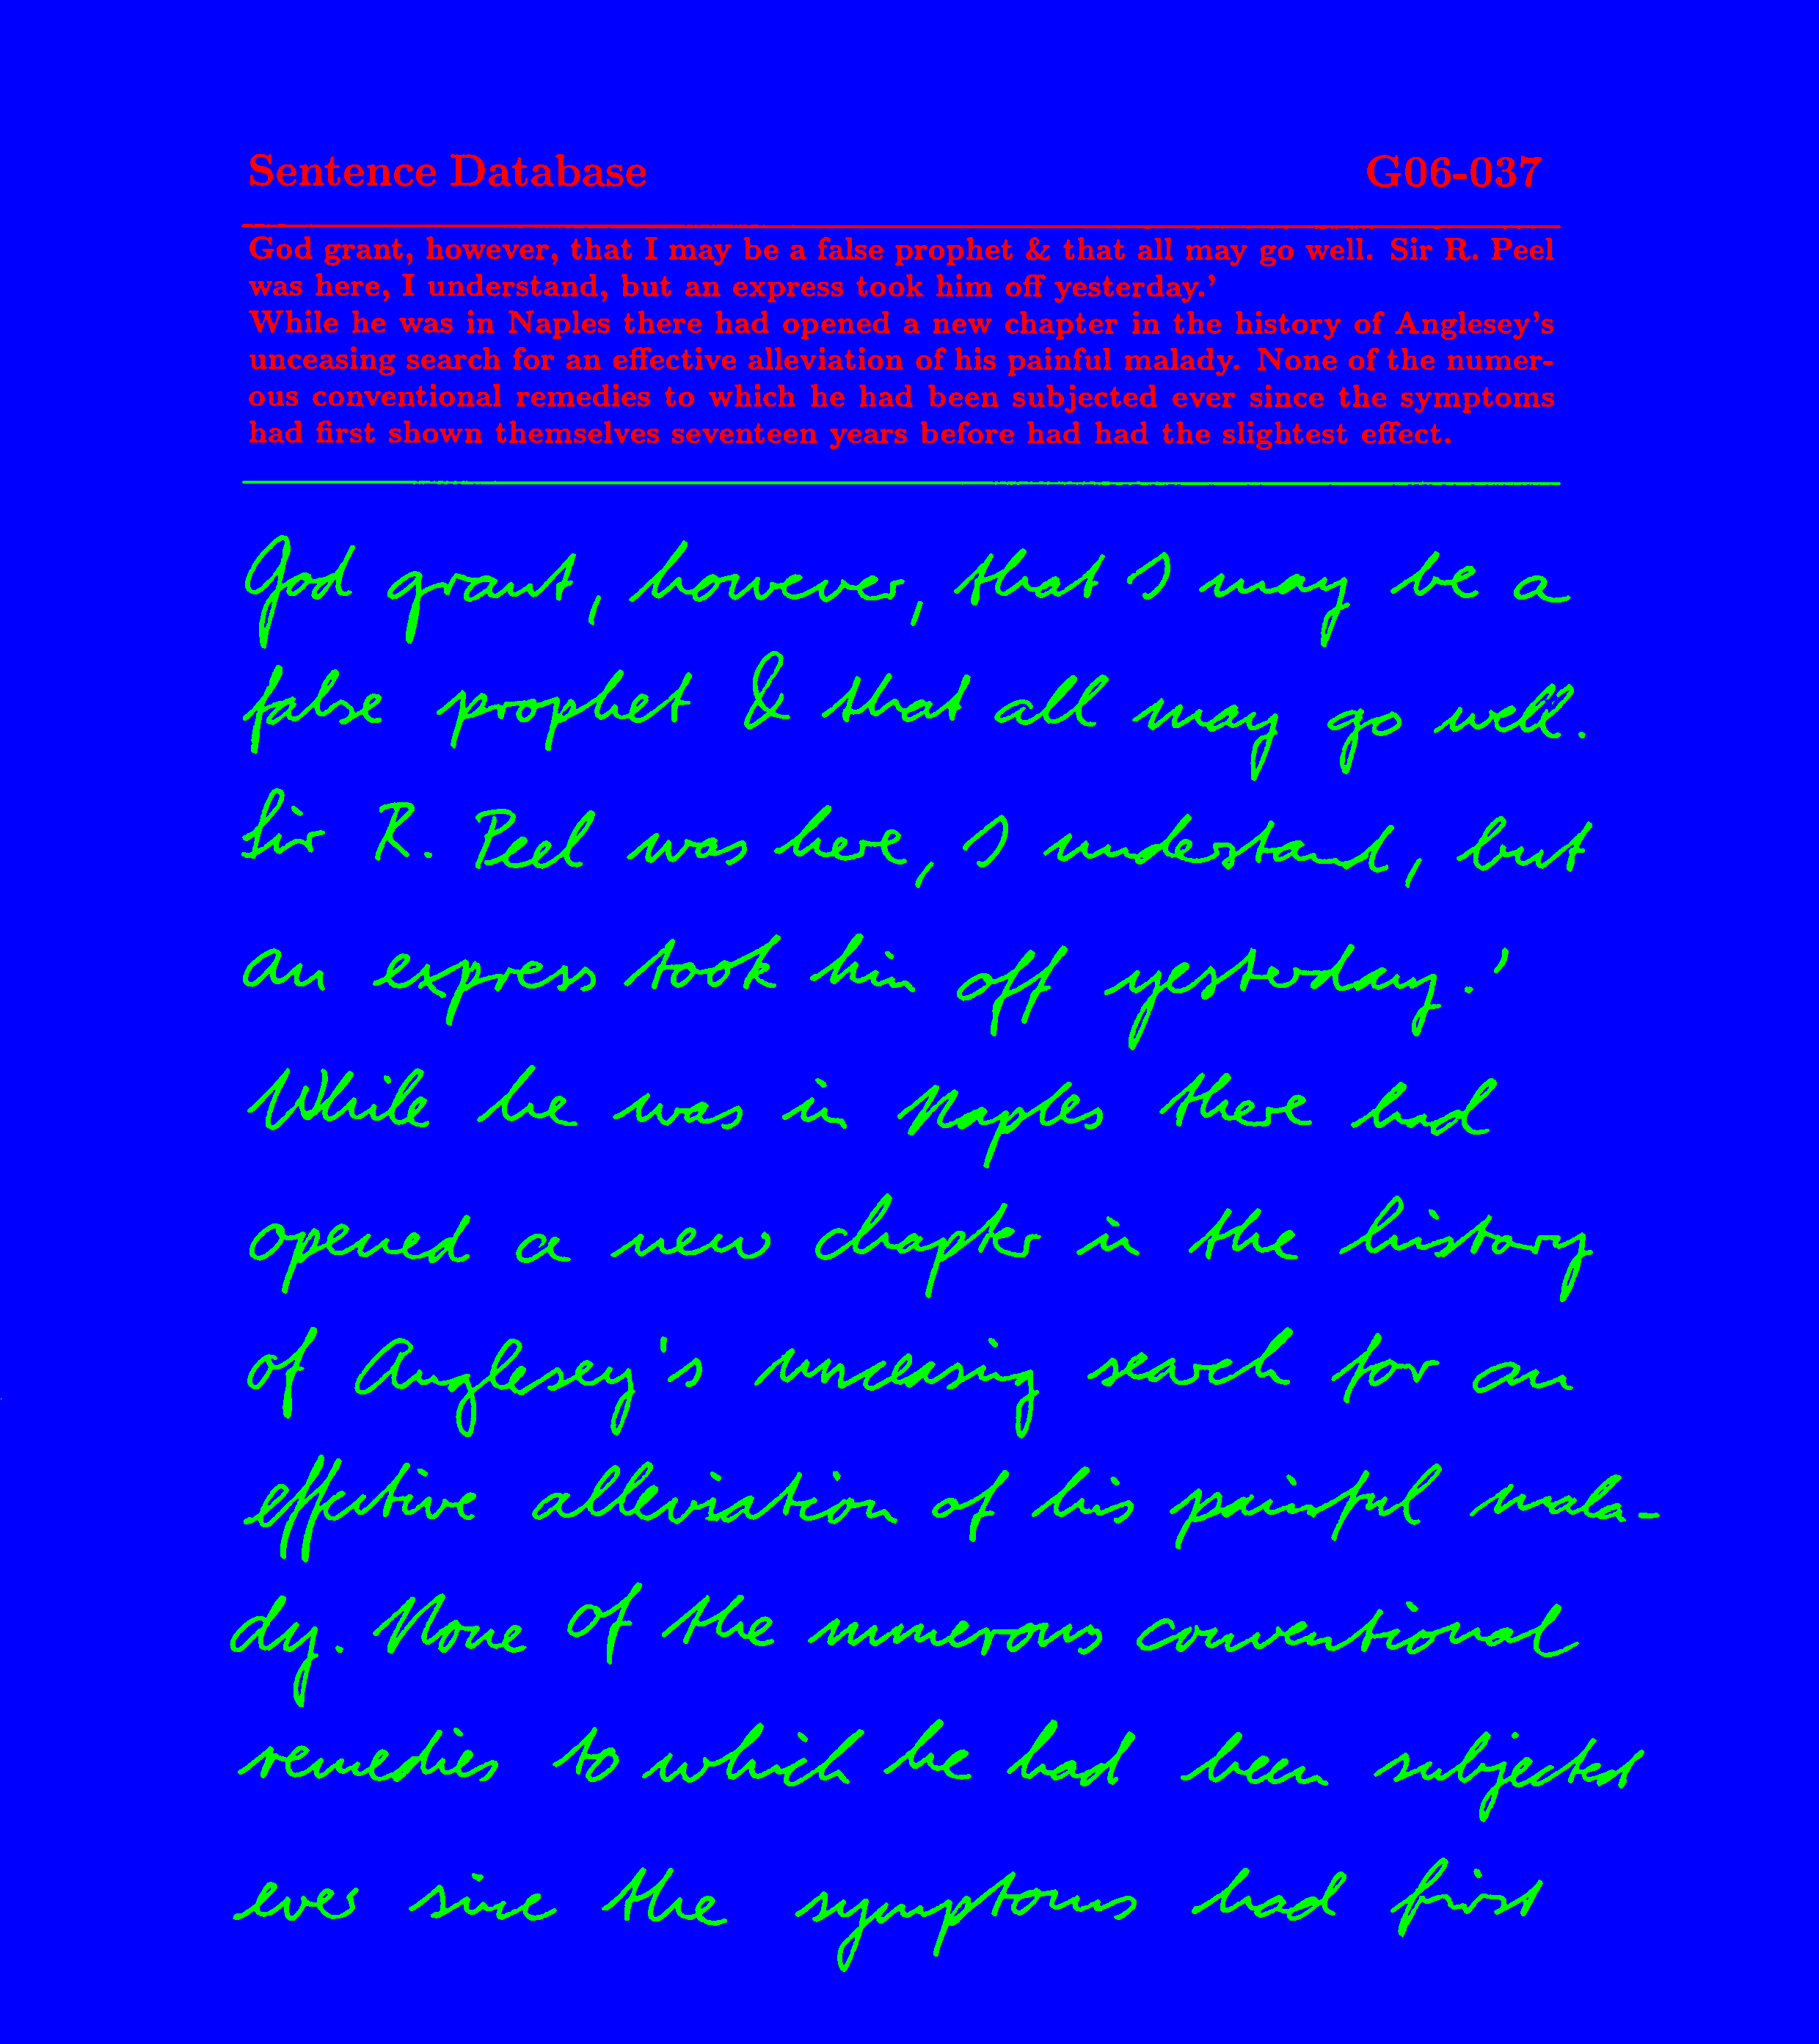 Sentence Database G06-037
God grant, however, that I may be a false prophet & that all may go well. Sir R. Peel
was here, I understand, but an express took him off yesterday.'
While he was in Naples there had opened a new chapter in the history of Anglesey's
unceasing search for an effective alleviation of his painful malady. None of the numer-
ous conventional remedies to which he had been subjected ever since the symptoms
had first shown themselves seventeen years before had had the slightest effect.
God grant, however, that I may be a
false prophet & that all may go well.
Sir R. Peel was here, I understand, but
an express took him off yesterday.'
While he was in Naples there had
opened a new chapter in the history
of Anglesey's unceasing search for an
effective alleviation of his painful mala-
dy. None of the numerous conventional
remedies to which he had been subjected
ever since the symptoms had first